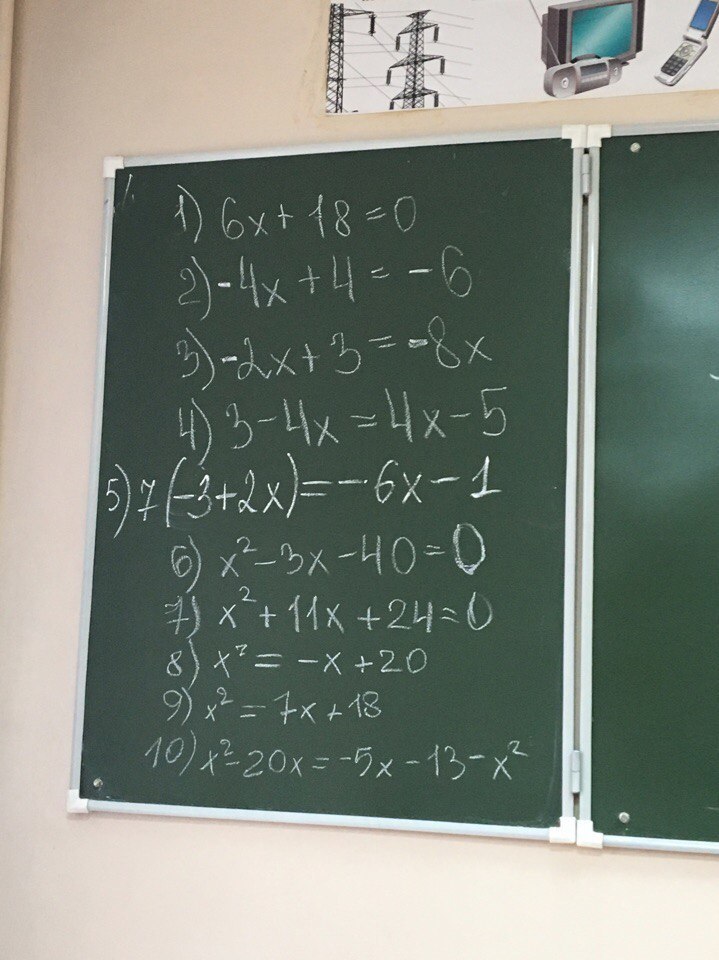 1) 6x + 18 = 0
2) -4x + 4 = -6
3) -2x + 3 = -8x
4) 3 - 4x = 4x - 5
5) 7(-3 + 2x) = -6x - 1
6) x² - 3x - 40 = 0
7) x² + 11x + 24 = 0
8) x² = -x + 20
9) x² = 7x + 18
10) x² - 20x = -5x - 13 - x²